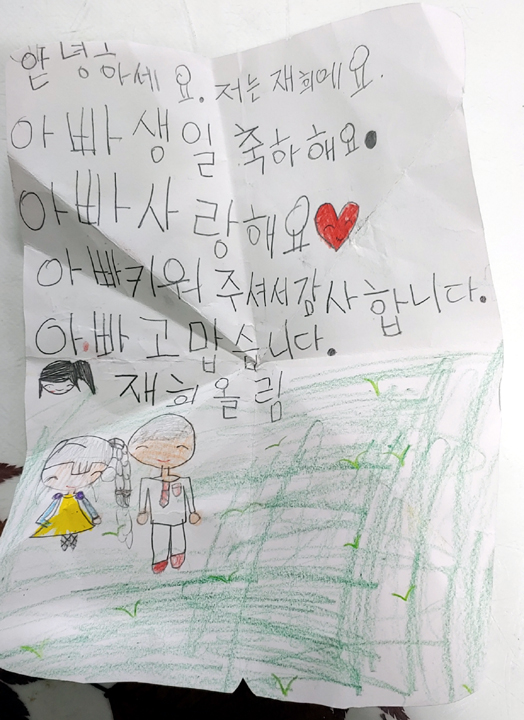 안녕하세요. 저는 재희에요.
아빠 생일 축하해요.
아빠 사랑해요
아빠 키워 주셔서 감사합니다.
아빠 고맙습니다.
재희 올림